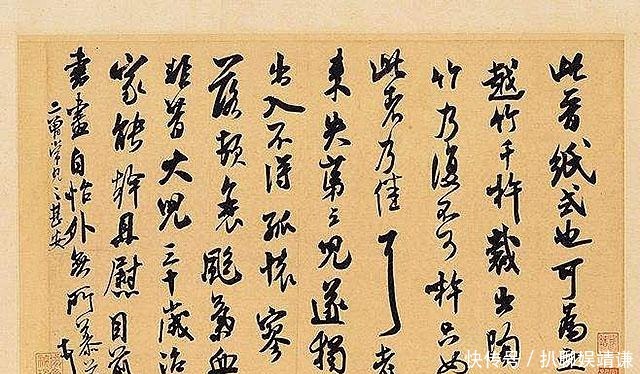 此晉紙式也可為
越竹千杵裁出陶
竹乃復不可杵只如
此者乃佳耳老
來失第三兒遂獨
出入不得孤懷寥
落頓衰颯氣血
非昔大兒三十歲治
家能幹且慰目前
書畫自怡外無所慕
二曾常見之甚安
快传号/扒酬娱靖谦